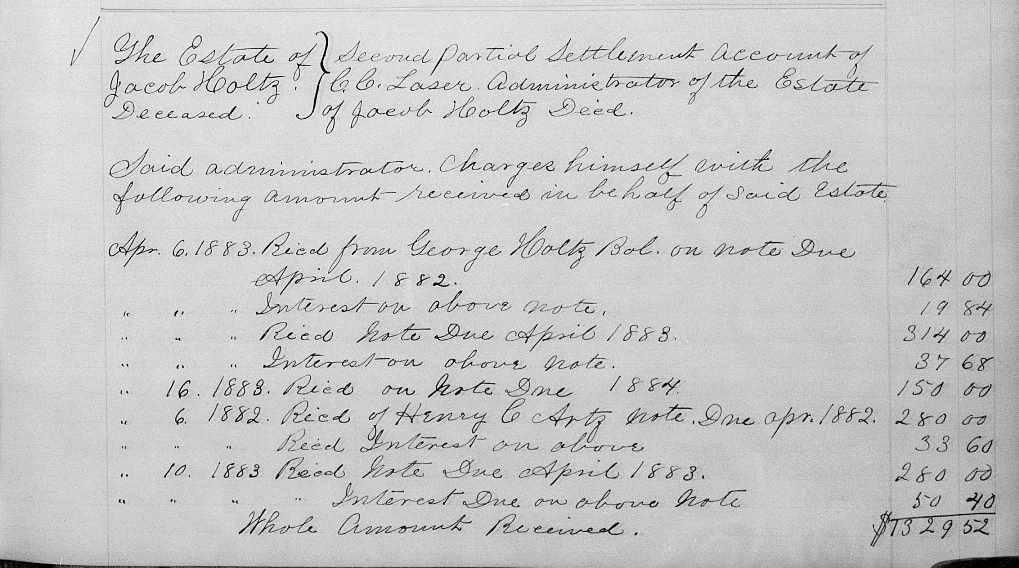 The Estate of } Second Partial Settlement Account of
Jacob Holtz. } C. C. Laser. Administrator of the Estate
Deceased. } of Jacob Holtz Decd.
Said administrator. Charges himself with the
following amount received in behalf of Said Estate
Apr. 6. 1883. Recd from George Holtz Bal. on note Due
April. 1882. 164 00
" " " Interest on above note. 19 84
" " " Recd Note Due April 1883. 314 00
" " " Interest on above note. 37 68
" 16. 1883. Recd on Note Due 1884. 150 00
" 6. 1882. Recd of Henry C Artz note. Due apr. 1882. 280 00
" " " Recd Interest on above 33 60
" 10. 1883 Recd Note Due April 1883. 280 00
" " " " Interest Due on above Note 50 40
Whole Amount Received. $1329 52